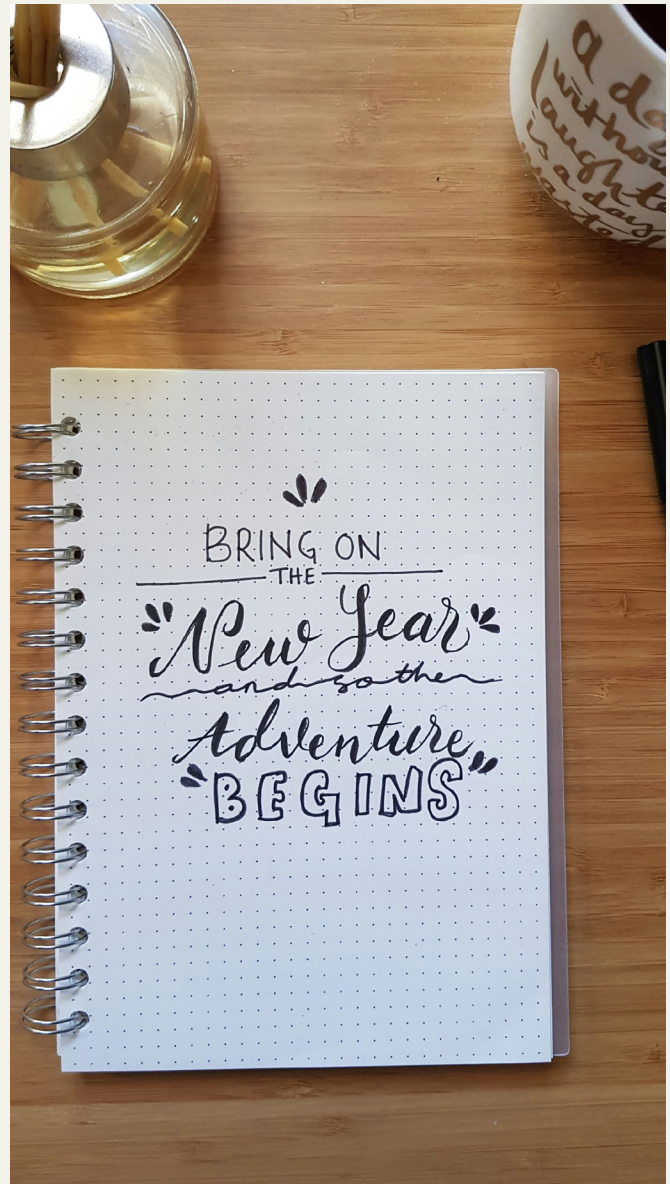 a da
withou
laughte
is a day
wasted
BRING ON
THE
New Year
and so the
Adventure
BEGINS